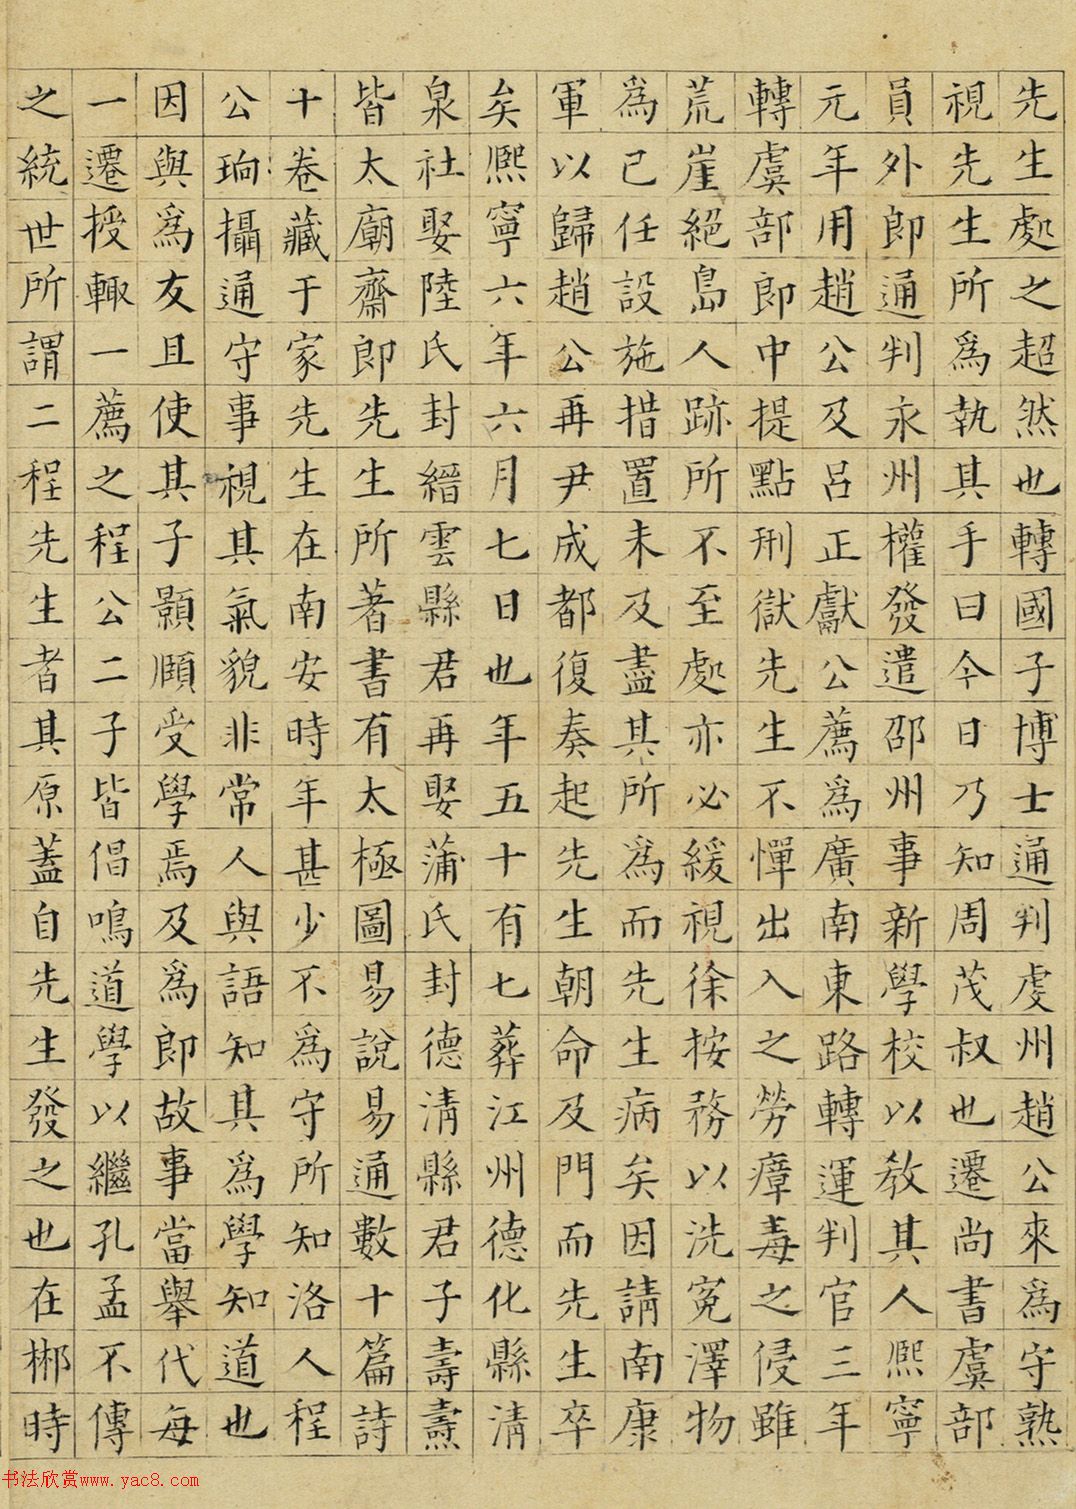 先生處之超然也轉國子博士通判虔州趙公來爲守熟
視先生所爲執其手曰今日乃知周茂叔也遷尚書虞部
員外郎通判永州權發遣邵州事新學校以教其人熙寧
元年用趙公及呂正獻公薦爲廣南東路轉運判官三年
轉虞部郎中提點刑獄先生不憚出入之勞瘴毒之侵雖
荒崖絕島人跡所不至處亦必緩視徐按務以洗冤澤物
爲己任設施措置未及盡其所爲而先生病矣因請南康
軍以歸趙公再尹成都復奏起先生朝命及門而先生卒
矣熙寧六年六月七日也年五十有七葬江州德化縣清
泉社娶陸氏封縉雲縣君再娶蒲氏封德清縣君子壽燾
皆太廟齋郎先生所著書有太極圖易說易通數十篇詩
十卷藏于家先生在南安時年甚少不爲守所知洛人程
公珦攝通守事視其氣貌非常人與語知其爲學知道也
因與爲友且使其子顥頤受學焉及爲郎故事當舉代每
一遷授輒一薦之程公二子皆倡鳴道學以繼孔孟不傳
之統世所謂二程先生者其原蓋自先生發之也在郴時
书法欣赏www.yac8.com